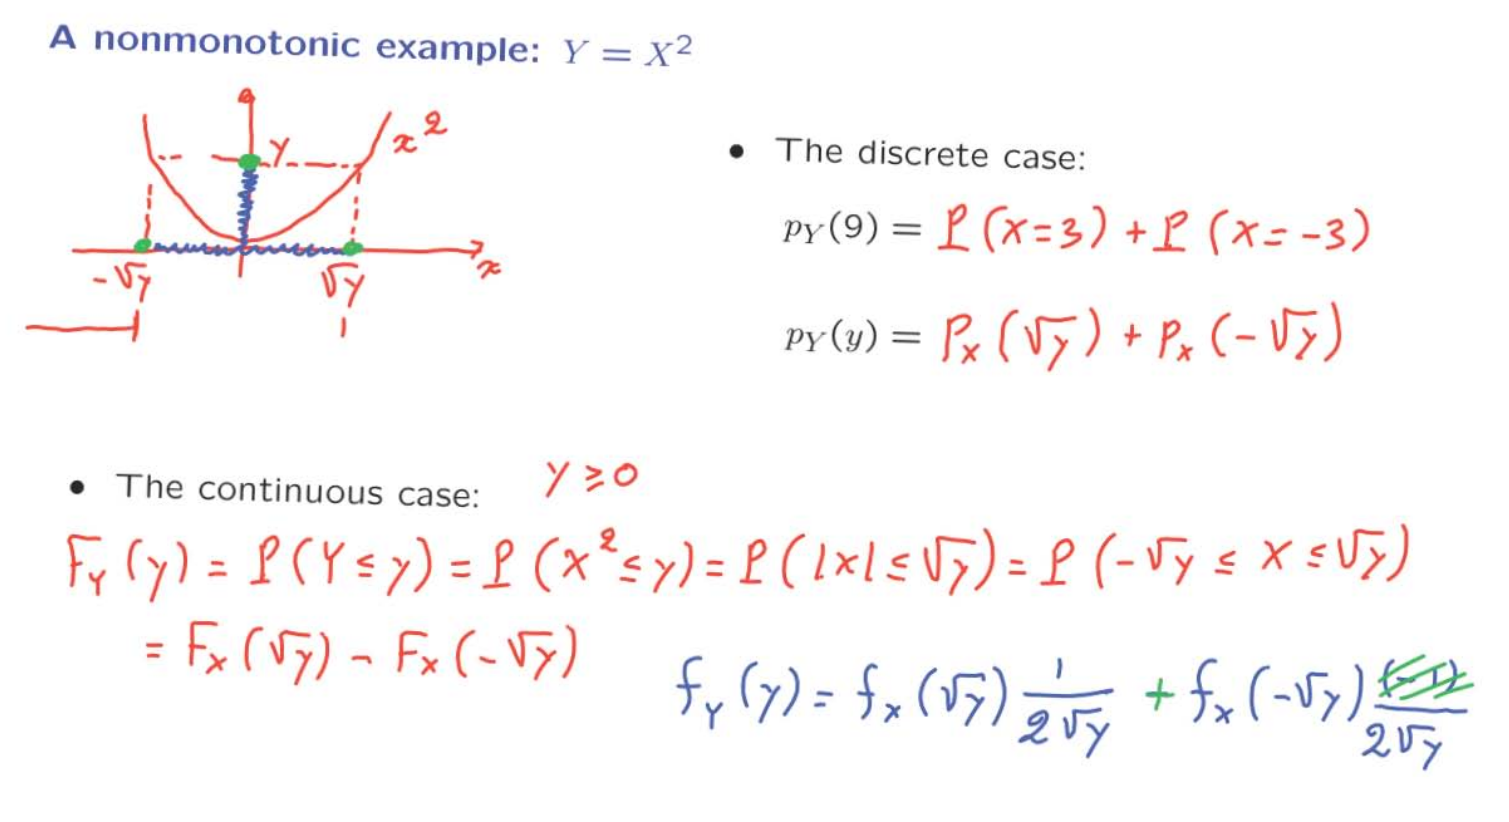 A nonmonotonic example: Y = X²
x²
y
x
-√y √y
• The discrete case:
p_Y(9) = P(X=3) + P(X=-3)
p_Y(y) = P_X(√y) + P_X(-√y)
• The continuous case: y ≥ 0
F_Y(y) = P(Y ≤ y) = P(X² ≤ y) = P(|X| ≤ √y) = P(-√y ≤ X ≤ √y)
= F_X(√y) - F_X(-√y)
f_Y(y) = f_X(√y) 1/(2√y) + f_X(-√y) (-1)/(2√y)